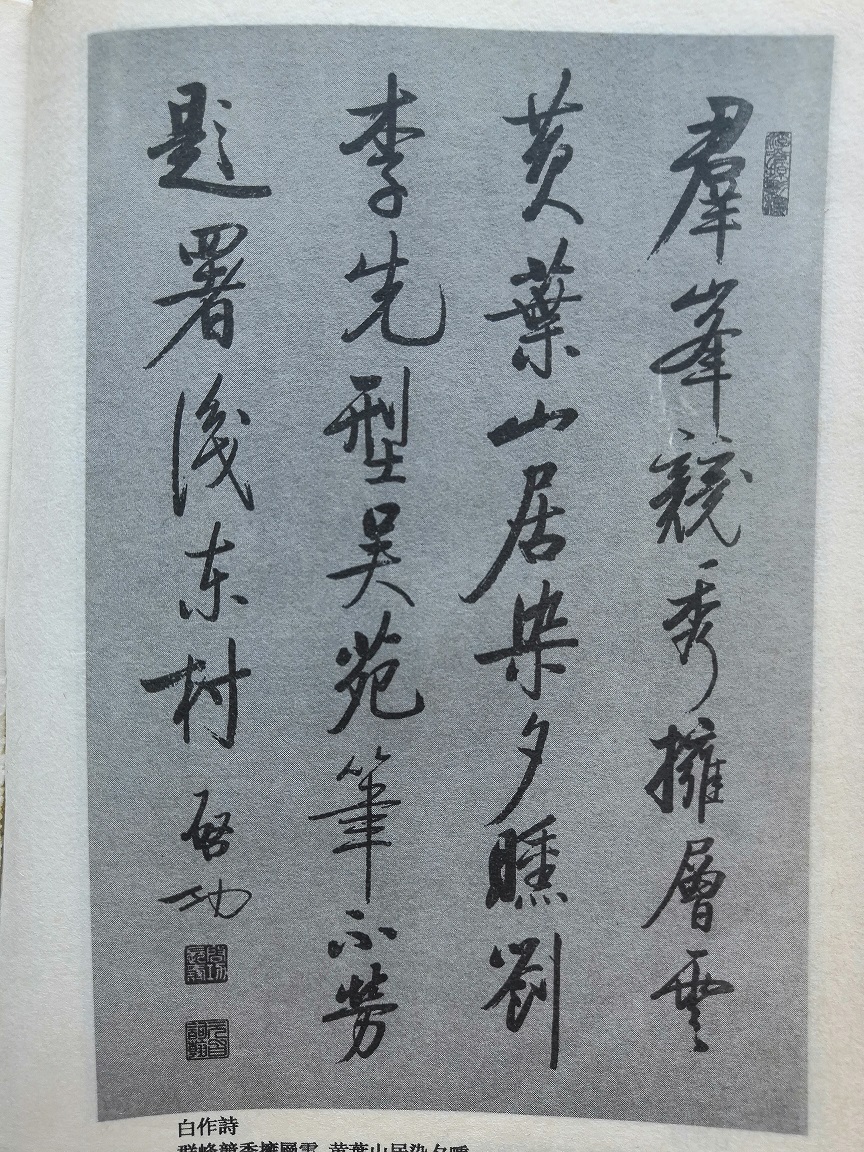 羣峯競秀擁層雲
黄葉山居染夕曛劉
李先型吴苑筆不勞
題署淺东村
啓功
自作詩
群峰競秀擁層雲 黄葉山居染夕曛